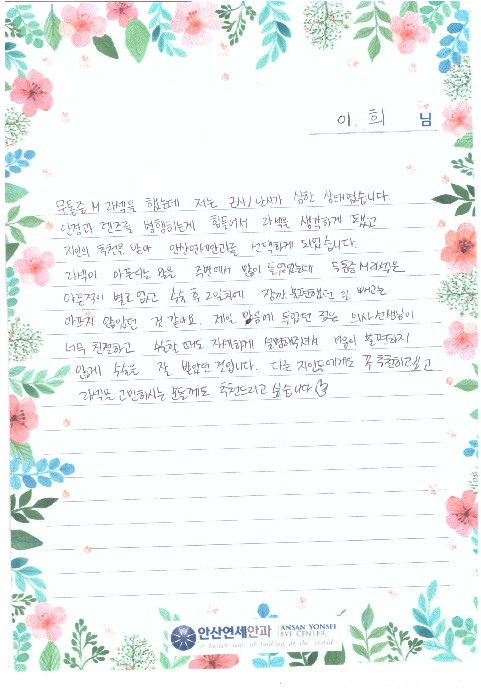 이. 희 님
무통증 M 라섹을 했는데 저는 근시/난시가 심한 상태였습니다
안경과 렌즈를 병행하는게 힘들어서 라섹을 생각하게 됐고
지인의 추천을 받아 안산연세안과를 선택하게 되었습니다.
라섹이 아프다는 말은 주변에서 많이 들었었는데 무통증 M라섹은
아픈적이 별로 없고 수술 후 2일차에 잠깐 불편했던 일 빼고는
아프지 않았던 것 같아요. 제일 마음에 들었던 것은 의사선생님이
너무 친절하고 수술할 때도 자세하게 설명해주셔서 마음이 불편하지
않게 수술을 잘 받았던 것입니다. 다른 지인들에게도 꼭 추천하겠고
라섹을 고민하시는 분들께도 추천드리고 싶습니다
안산연세안과 ANSAN YONSEI EYE CENTER
A better way of looking at the world